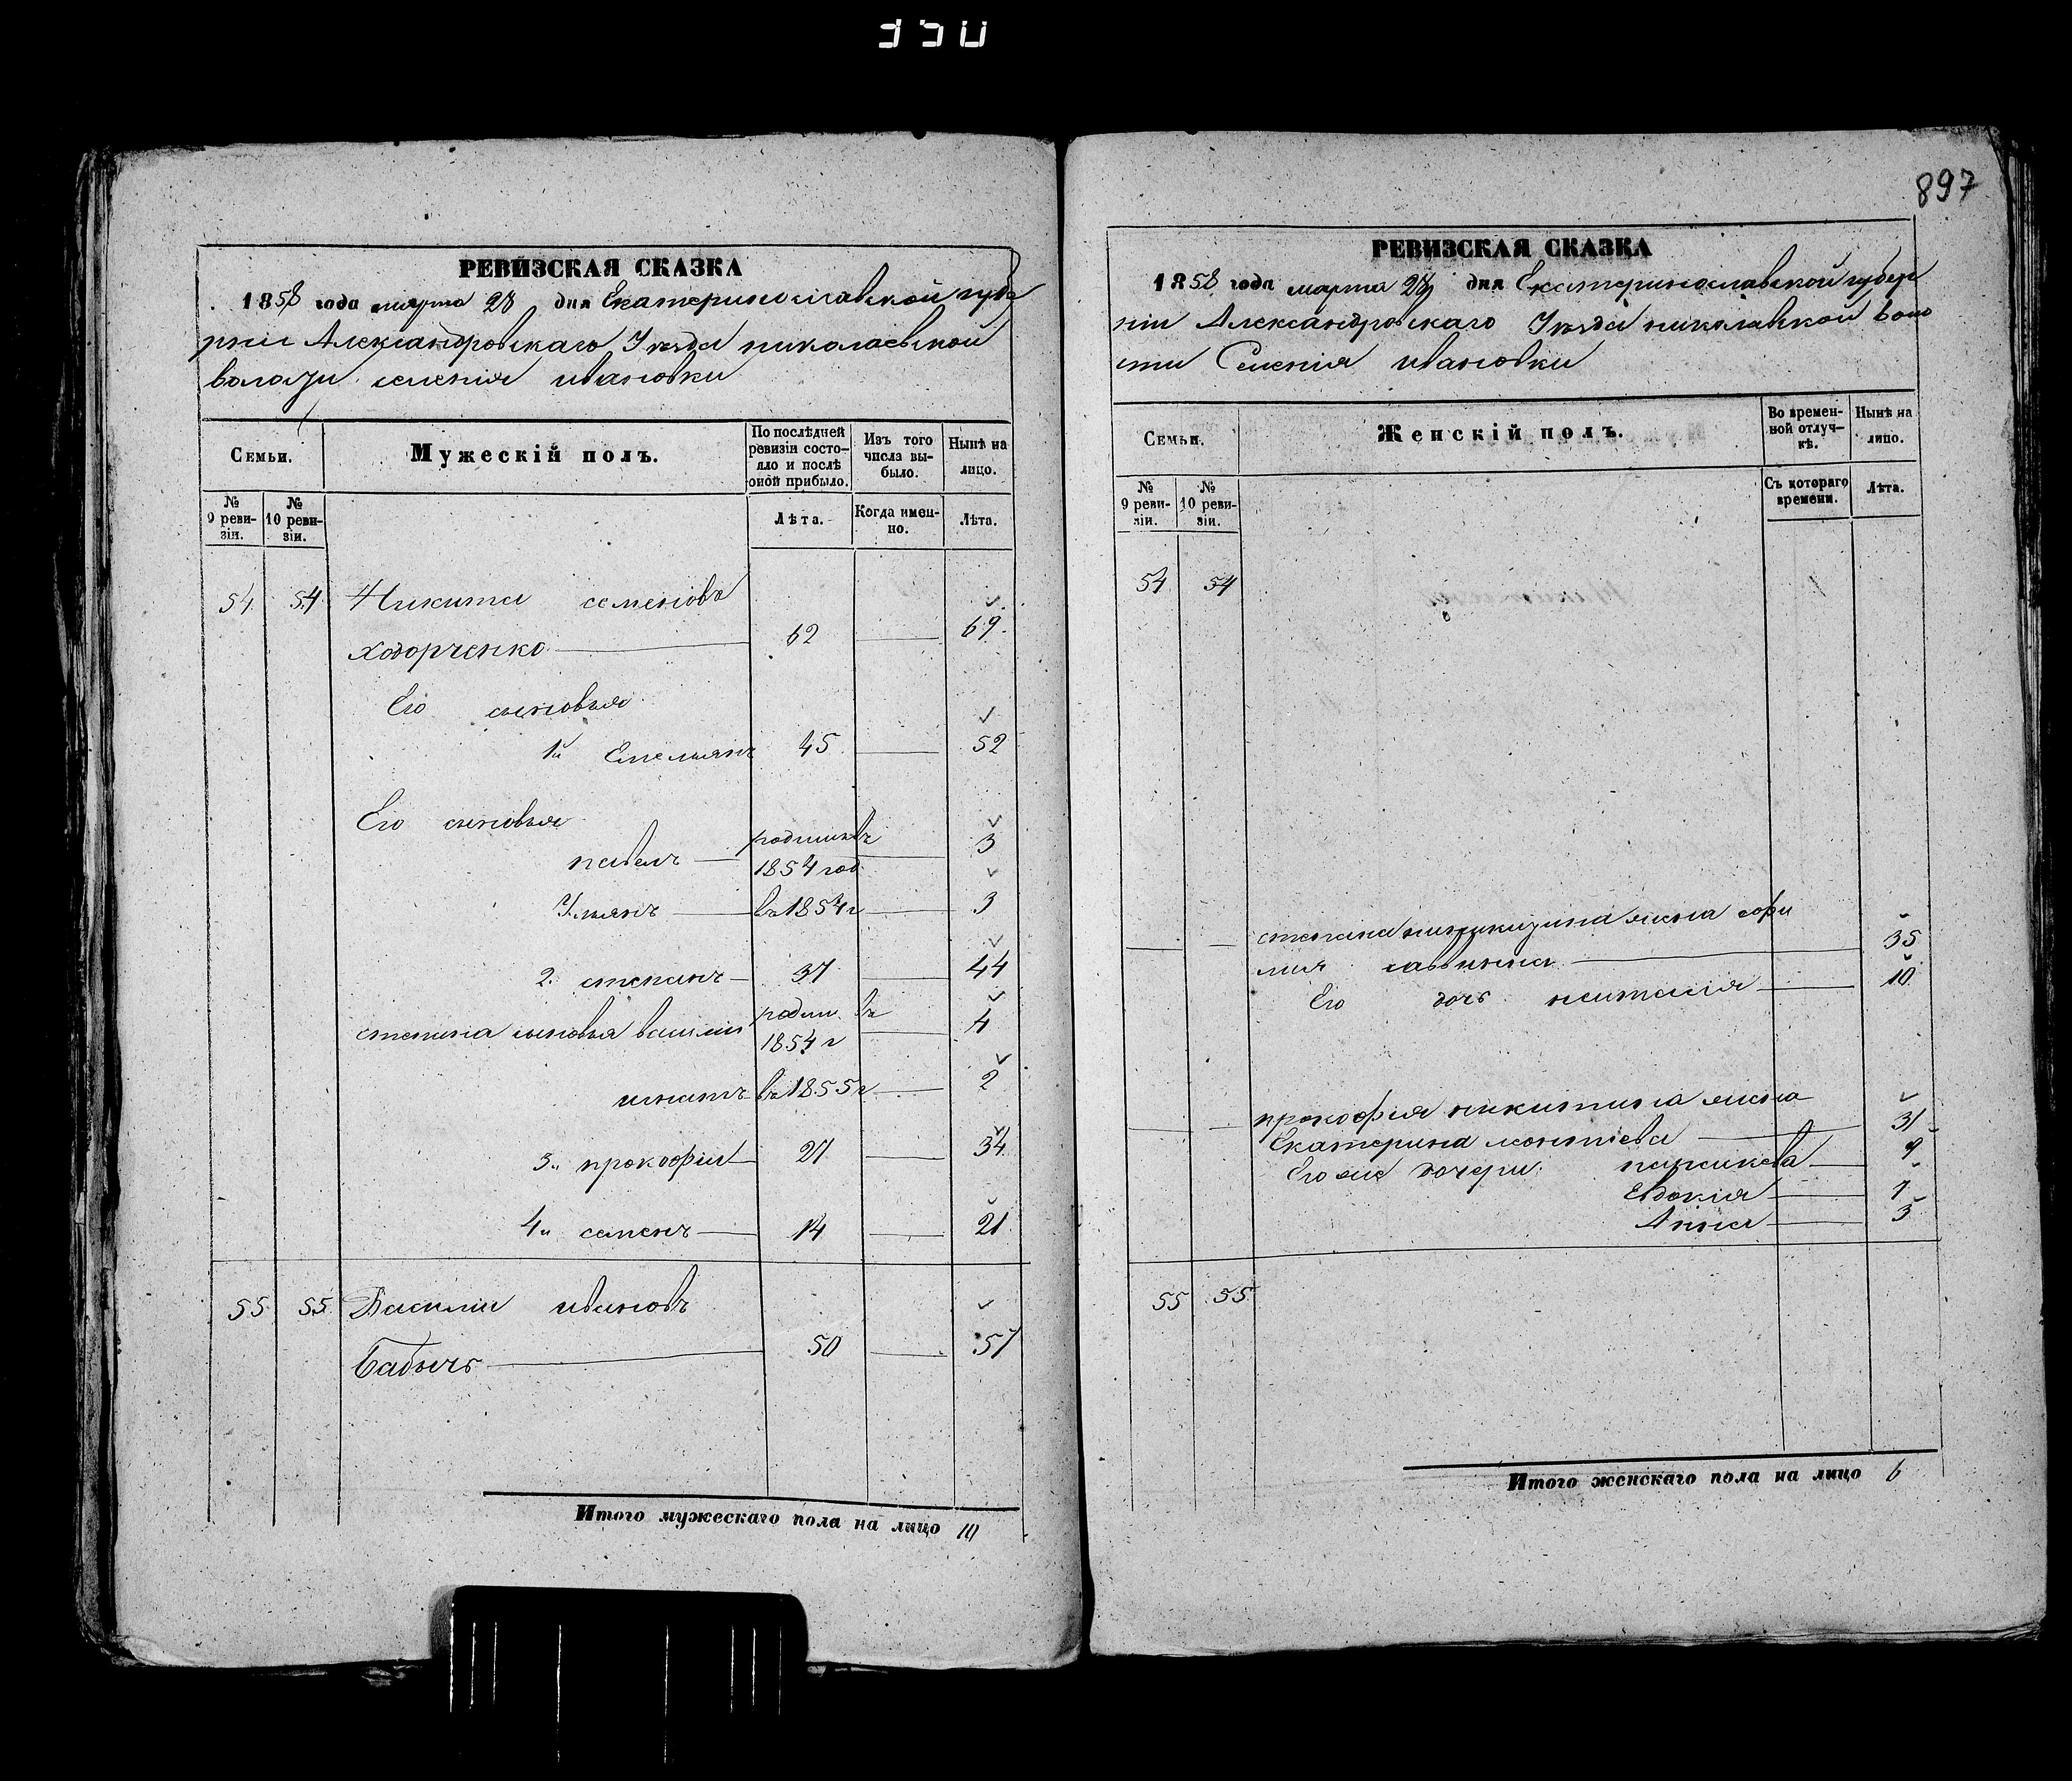 897
РЕВИЗСКАЯ СКАЗКА
1858 года марта 28 дня Екатеринославской губе
рніи Александровскаго Уѣзда николаевской
волости селенія ивановки
Семьи.
Мужескій полъ.
По послѣдней ревизіи состояло и послѣ оной прибыло.
Изъ того числа выбыло.
Нынѣ на лицо.
№ 9 ревизіи.
№ 10 ревизіи.
Лѣта.
Когда именно.
Лѣта.
54 54 Никита семеновъ
ходорченко 62 69
Его сыновья
1й Емельянъ 45 52
Его сыновья
павелъ родился въ 1854 год 3
Ульянъ въ 1854 г 3
2. степанъ 37 44
степана сыновья василій родил. въ 1854 г 4
игнатъ въ 1855 г 2
3й прокофій 27 34
4й семенъ 14 21
55 55 Василій ивановъ
Бабичъ 50 57
Итого мужескаго пола на лицо 10
РЕВИЗСКАЯ СКАЗКА
1858 года марта 28 дня Екатеринославской губер
ніи Александровскаго Уѣзда николавкой воло
сти Селенія ивановки
Семьи.
Женскій полъ.
Во временной отлучкѣ.
Нынѣ на лицо.
№ 9 ревизіи.
№ 10 ревизіи.
Съ котораго времени.
Лѣта.
54 54
степана никитина жена
савина 35
Его дочь наталія 10
прокофія никитина жена
Екатерина леонтіева 31
Его же дочери: параскева 9
Евдокія 7
Анна 3
55 55
Итого женскаго пола на лицо 6